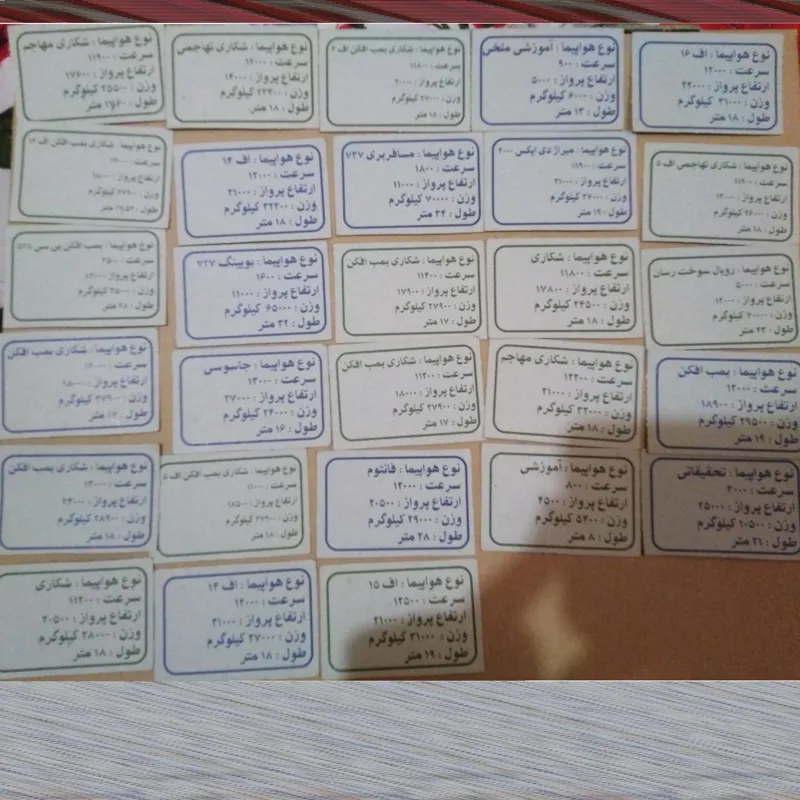 نوع هواپیما : اف ۱۶
سرعت : ۱۲۰۰۰
ارتفاع پرواز : ۲۲۰۰۰
وزن : ۳۱۰۰۰ کیلوگرم
طول : ۱۸ متر
نوع هواپیما : آموزشی ملخی
سرعت : ۹۰۰
ارتفاع پرواز : ۵۰۰۰
وزن : ۶۰۰۰ کیلوگرم
طول : ۱۳ متر
نوع هواپیما : شکاری بمب افکن اف ۴
سرعت : ۱۱۸۰۰
ارتفاع پرواز :
وزن : ۲۷۰۰۰ کیلوگرم
طول : ۱۸ متر
نوع هواپیما : شکاری تهاجمی
سرعت : ۱۲۰۰۰
ارتفاع پرواز : ۱۴۰۰۰
وزن : ۲۳۴۰۰ کیلوگرم
طول : ۱۸ متر
نوع هواپیما : شکاری مهاجم
سرعت : ۱۱۹۰۰
ارتفاع پرواز : ۱۷۶۰۰
وزن : ۲۵۵۰۰ کیلوگرم
طول : ۱۷٫۶۰ متر
نوع هواپیما : شکاری تهاجمی اف ۵
سرعت : ۱۱۹۰۰
ارتفاع پرواز : ۱۴۰۰۰
وزن : ۲۶۰۰۰ کیلوگرم
طول : ۱۸ متر
نوع هواپیما : میراژ دی ایکس ۲۰۰۰
سرعت : ۱۱۹۰۰
ارتفاع پرواز : ۲۱۰۰۰
وزن : ۲۷۰۰۰ کیلوگرم
طول : ۱۹ متر
نوع هواپیما : مسافربری ۷۳۷
سرعت : ۱۸۰۰
ارتفاع پرواز : ۱۱۰۰۰
وزن : ۷۰۰۰۰ کیلوگرم
طول : ۳۴ متر
نوع هواپیما : اف ۱۴
سرعت : ۱۲۰۰۰
ارتفاع پرواز : ۲۱۰۰۰
وزن : ۳۲۴۰۰ کیلوگرم
طول : ۱۸ متر
نوع هواپیما : شکاری بمب افکن اف
سرعت :
ارتفاع پرواز :
وزن : کیلوگرم
طول : متر
نوع هواپیما : رویال سوخت رسان
سرعت : ۵۰۰۰
ارتفاع پرواز : ۱۲۰۰۰
وزن : ۷۰۰۰۰ کیلوگرم
طول : ۴۳ متر
نوع هواپیما : شکاری
سرعت : ۱۱۸۰۰
ارتفاع پرواز : ۱۷۸۰۰
وزن : ۲۴۵۰۰ کیلوگرم
طول : ۱۸ متر
نوع هواپیما : شکاری بمب افکن
سرعت : ۱۱۴۰۰
ارتفاع پرواز : ۱۷۹۰۰
وزن : ۲۷۹۰۰ کیلوگرم
طول : ۱۷ متر
نوع هواپیما : بوئینگ ۷۲۷
سرعت : ۱۶۰۰
ارتفاع پرواز : ۱۱۰۰۰
وزن : ۶۵۰۰۰ کیلوگرم
طول : ۳۲ متر
نوع هواپیما : بمب افکن بی سی
سرعت :
ارتفاع پرواز :
وزن : کیلوگرم
طول : متر
نوع هواپیما : بمب افکن
سرعت : ۱۲۰۰۰
ارتفاع پرواز : ۱۸۹۰۰
وزن : ۲۹۵۰۰ کیلوگرم
طول : ۱۹ متر
نوع هواپیما : شکاری مهاجم
سرعت : ۱۲۲۰۰
ارتفاع پرواز : ۲۱۰۰۰
وزن : ۳۲۰۰۰ کیلوگرم
طول : ۱۸ متر
نوع هواپیما : شکاری بمب افکن
سرعت : ۱۱۲۰۰
ارتفاع پرواز : ۱۸۰۰۰
وزن : ۲۷۹۰۰ کیلوگرم
طول : ۱۷ متر
نوع هواپیما : جاسوسی
سرعت : ۱۳۰۰۰
ارتفاع پرواز : ۲۷۰۰۰
وزن : ۲۴۰۰۰ کیلوگرم
طول : ۱۶ متر
نوع هواپیما : شکاری بمب افکن
سرعت :
ارتفاع پرواز : ۱۸۰۰۰
وزن : ۲۷۹۰۰ کیلوگرم
طول : ۱۷ متر
نوع هواپیما : تحقیقاتی
سرعت : ۲۰۰۰
ارتفاع پرواز : ۲۵۰۰۰
وزن : ۱۰۵۰۰ کیلوگرم
طول : ۲۱ متر
نوع هواپیما : آموزشی
سرعت : ۸۰۰
ارتفاع پرواز : ۴۵۰۰
وزن : ۵۴۰۰ کیلوگرم
طول : ۸ متر
نوع هواپیما : فانتوم
سرعت : ۱۲۰۰۰
ارتفاع پرواز : ۲۰۵۰۰
وزن : ۲۹۰۰۰ کیلوگرم
طول : ۲۸ متر
نوع هواپیما : شکاری بمب افکن اف ۵
سرعت :
ارتفاع پرواز : ۱۸۵۰۰
وزن : ۲۷۹۰۰ کیلوگرم
طول : ۱۸ متر
نوع هواپیما : شکاری بمب افکن
سرعت : ۱۲۰۰۰
ارتفاع پرواز : ۲۴۰۰۰
وزن : ۲۸۹۰۰ کیلوگرم
طول : ۱۸ متر
نوع هواپیما : اف ۱۵
سرعت : ۱۲۵۰۰
ارتفاع پرواز : ۲۱۰۰۰
وزن : ۳۱۰۰۰ کیلوگرم
طول : ۱۹ متر
نوع هواپیما : اف ۱۴
سرعت : ۱۲۰۰۰
ارتفاع پرواز : ۲۱۰۰۰
وزن : ۲۷۰۰۰ کیلوگرم
طول : ۱۸ متر
نوع هواپیما : شکاری
سرعت : ۱۱۲۰۰
ارتفاع پرواز : ۲۰۵۰۰
وزن : ۲۸۰۰۰ کیلوگرم
طول : ۱۸ متر